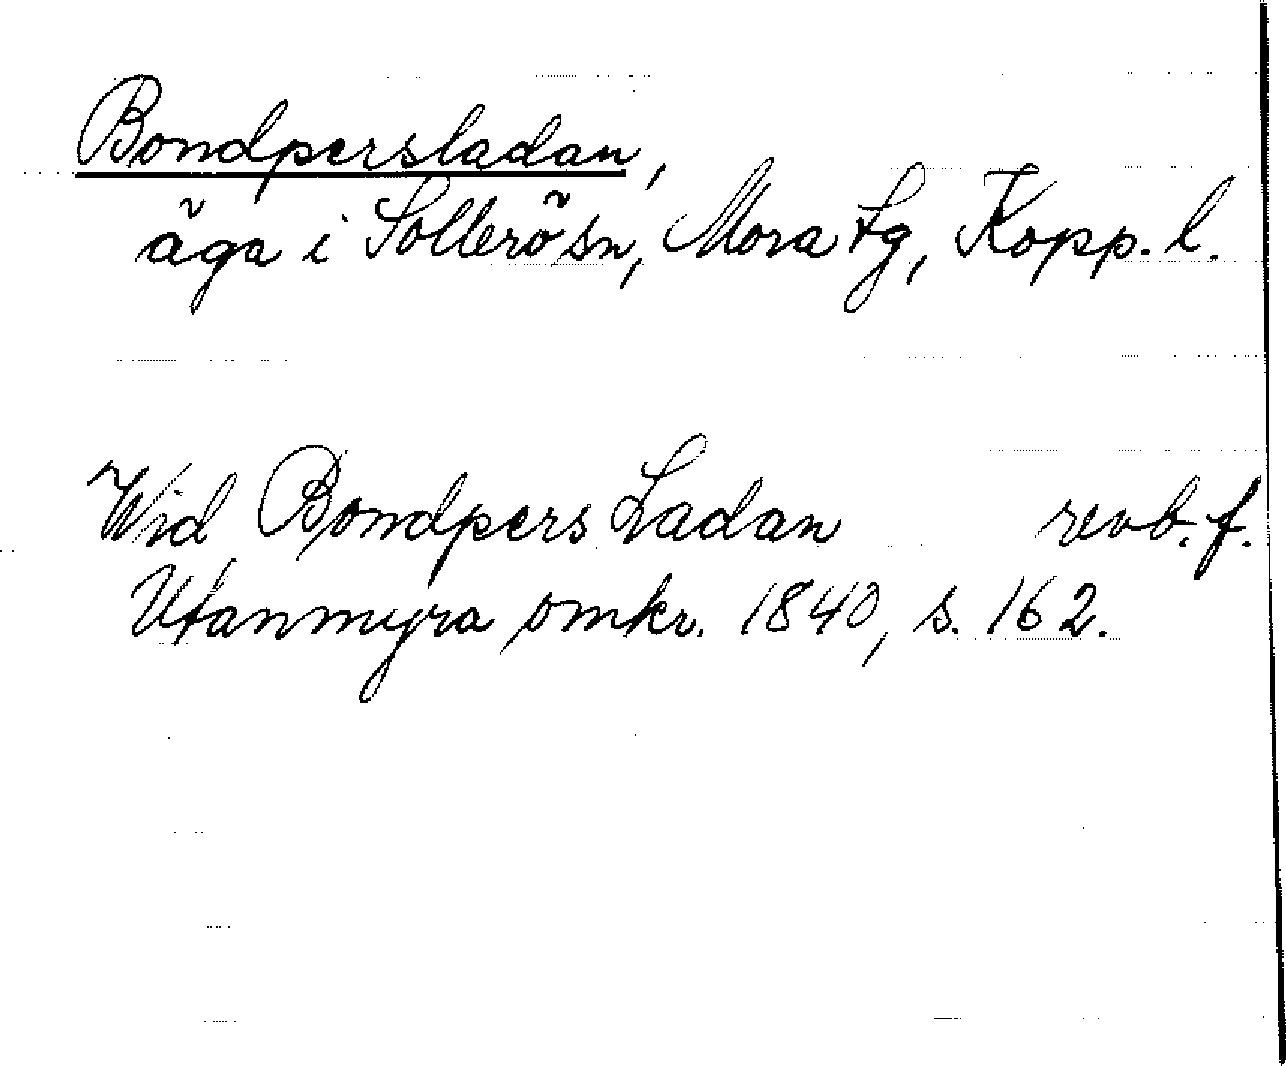 Bondpersladan,
äga i Sollerö sn, Mora tg, Kopp. l.
Wid Bondpers Ladan revb. f.
Utanmyra omkr. 1840, s. 162.